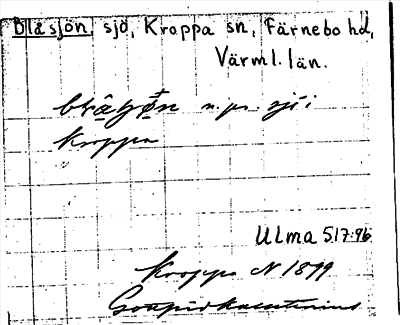 Blåsjön, sjö, Kroppa sn, Färnebo hd,
Värml. län.
n. pr. sjö i
Kroppa
Ulma 517:96
Kroppa N 1899